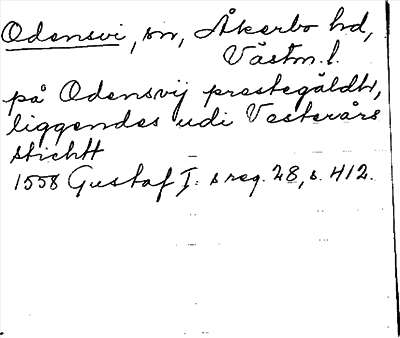 Odensvi, sn, Åkerbo hd,
Västm. l.
på Odensvij prestegäldh,
liggendes udi Vesterårs
stichtt
1558 Gustaf I: s reg. 28, s. 412.